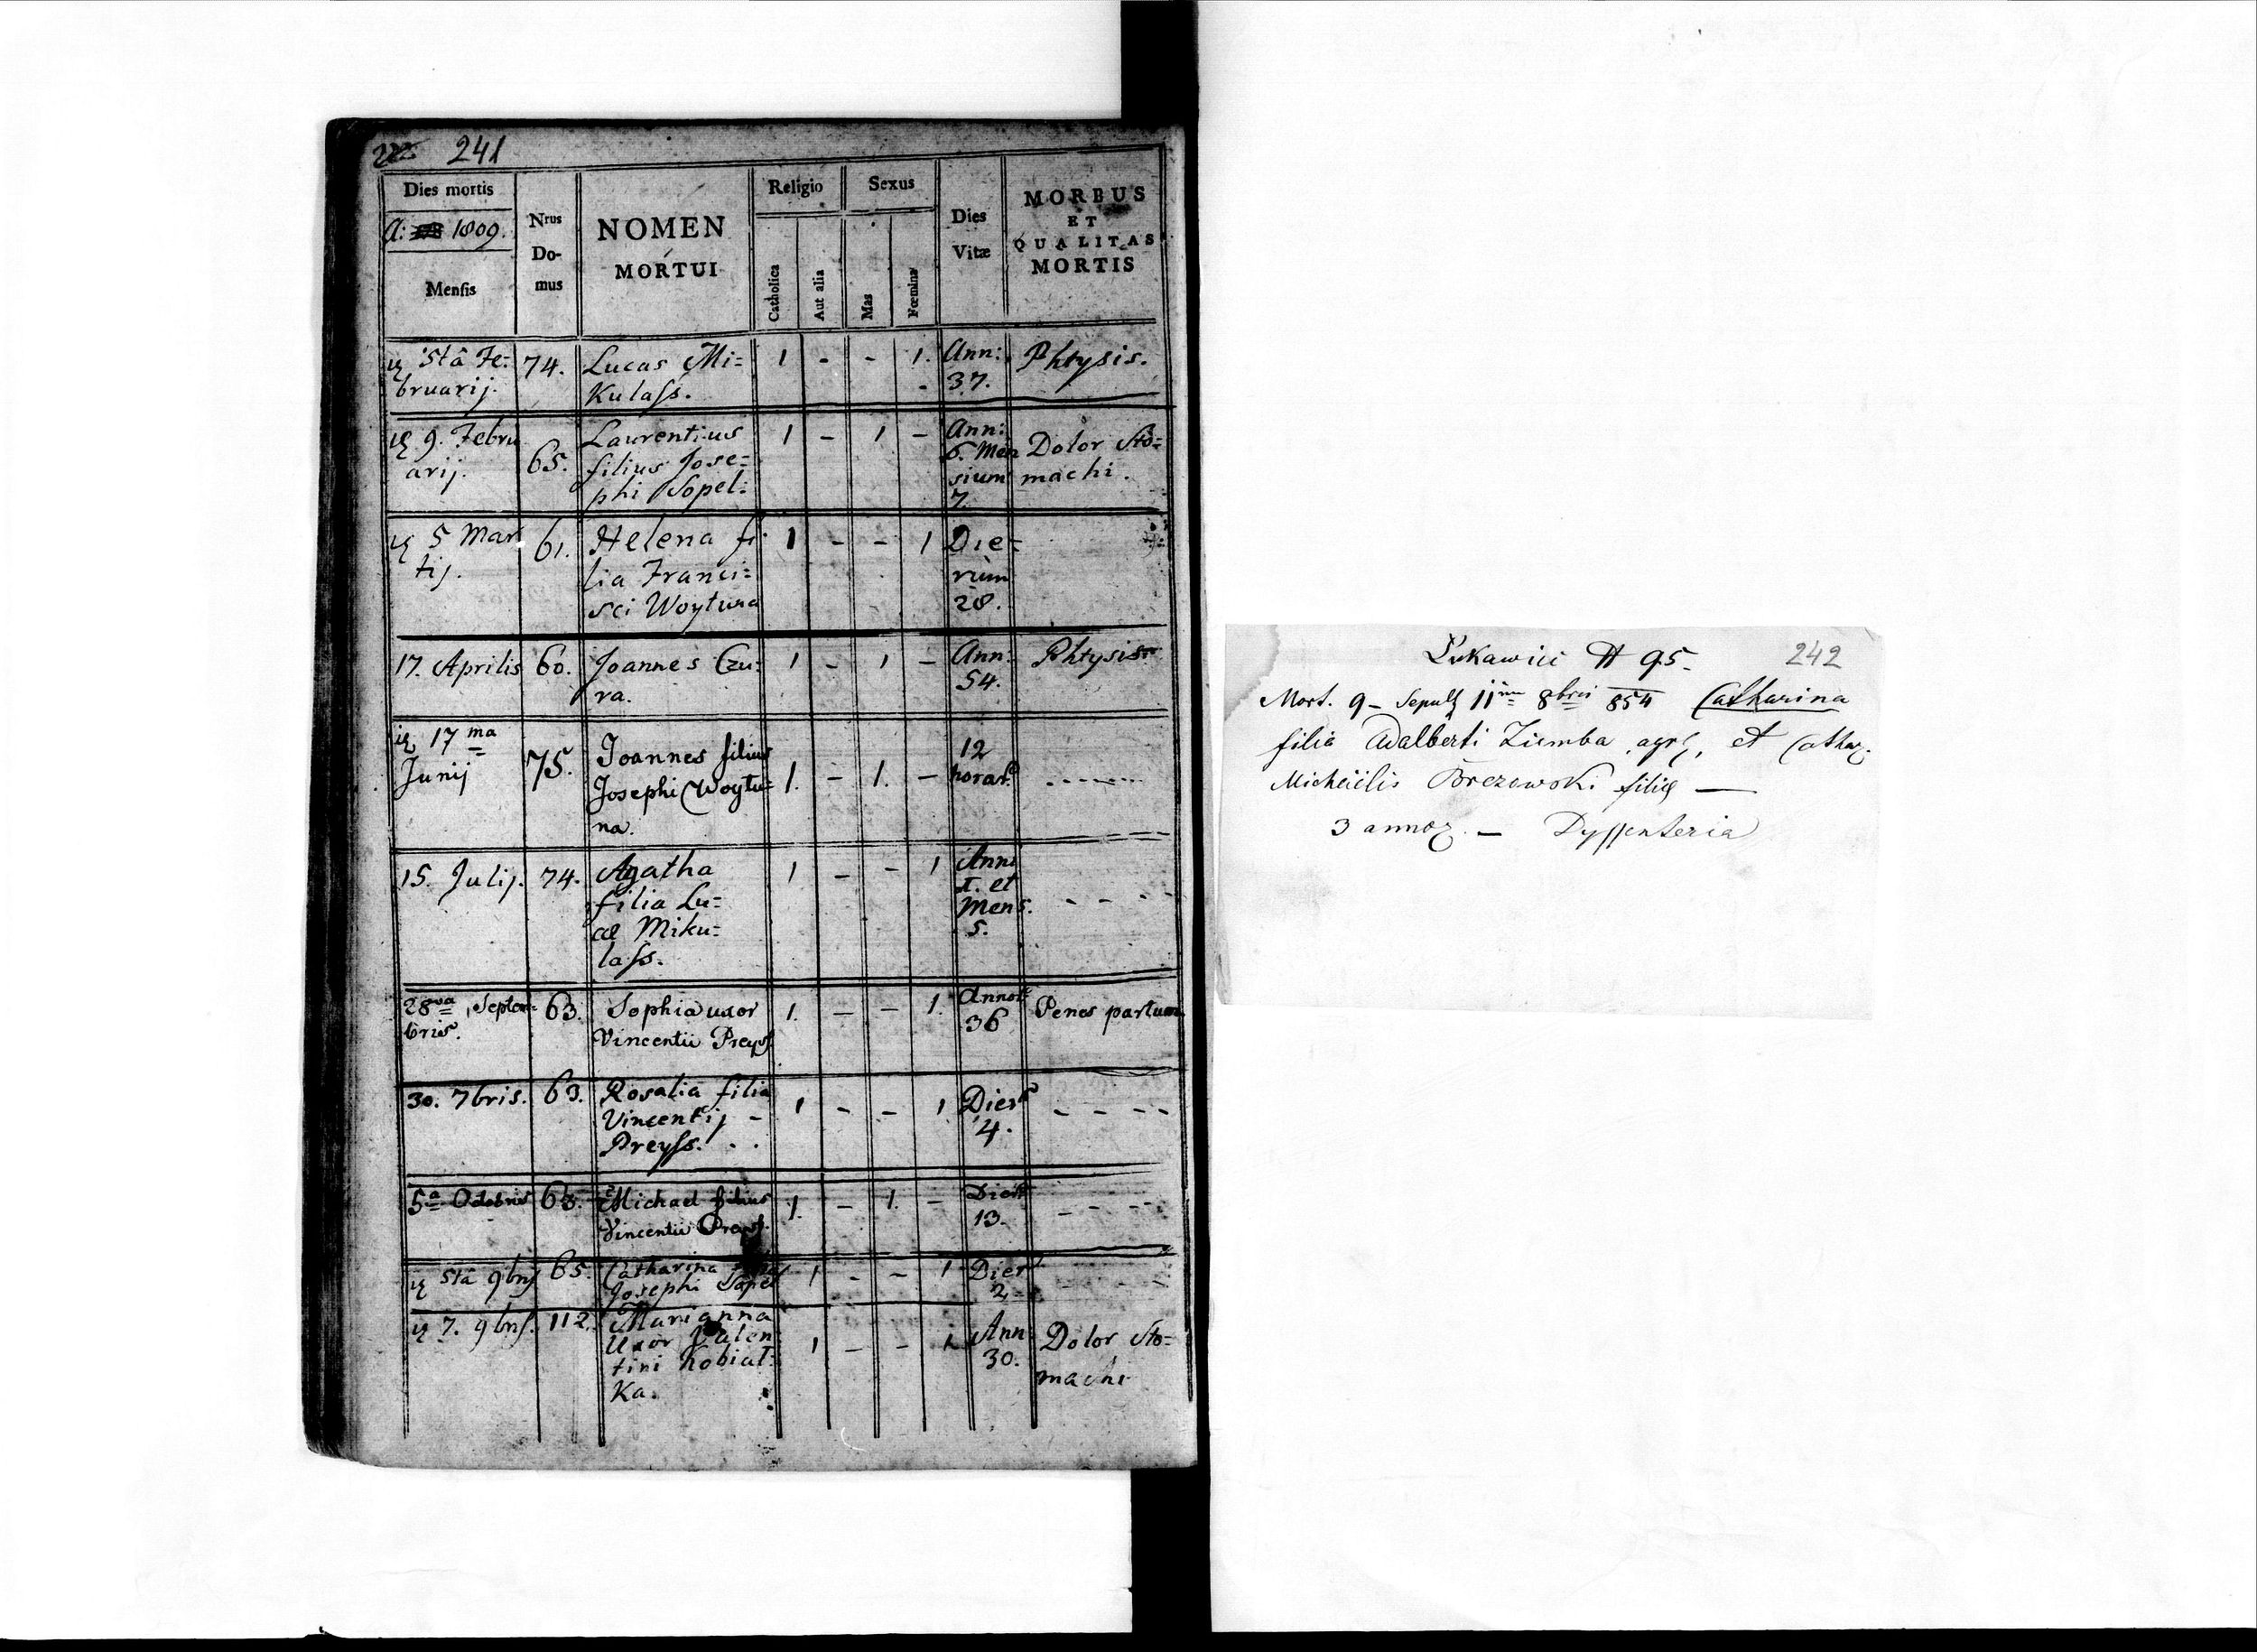 241
Dies mortis
A: 1809.
Mensis
Nrus
Do-
mus
NOMEN
MORTUI
Religio
Catholica
Aut alia
Sexus
Mas
Fœmina
Dies
Vitæ
MORBUS
ET
QUALITAS
MORTIS
5tâ Fe:
bruarij.
74.
Lucas Mi=
Kulass.
1 - - 1.
Ann:
37.
Phtysis.
9. Febru
arij.
65.
Laurentius
filius Jose=
phi Sopel:
1 - 1 -
Ann:
6. Men
sium
7.
Dolor Sto=
machi.
5 Mar
tij.
61.
Helena fi
lia Franci=
sci Woytuna
1 - - 1
Die=
rum
28.
17. Aprilis
60.
Joannes Czu:
ra.
1 - 1 -
Ann:
54.
Phtysis
17 ma
Junij
75.
Joannes filius
Josephi Woytu=
na.
1. - 1. -
12
horar.
15. Julij.
74.
Agatha
filia Lu=
cæ Miku=
lass.
1 - - 1
Ann:
I. et
Mens.
5.
- - -
28va Septem=
bris.
63.
Sophia uxor
Vincentii Preyss
1. - - 1.
Annor
36
Penes partum
30. 7bris.
63.
Rosalia filia
Vincentij -
Preyss.
1 - - 1
Dier
4.
- - - -
5a Octobris
63.
Michael filius
Vincentii Preyss.
1. - 1. -
Dier
13.
- - - -
5tâ 9brij
65.
Catharina
Josephi Sopel
1 - - 1
Dier
2
7. 9bris.
112.
Marianna
Uxor Valen
tini Kobiat=
Ka.
1 - - 1.
Ann
30.
Dolor Sto=
machi
Łukawici # 95.
242
Mort. 9 - Sepult 11ma 8bris 854 Catharina
filia Adalberti Ziemba agr, et Cathar.
Michaelis Brezowski filiæ —
3 annor. — Dyssenteria